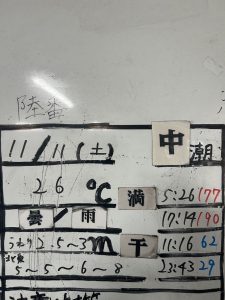 陸番
11/11(土) 中潮
26℃ 満 5:26 177
曇/雨 17:14 190
うねり2.5~3m 干 11:16 62
北東 5~5~6~8 23:43 29